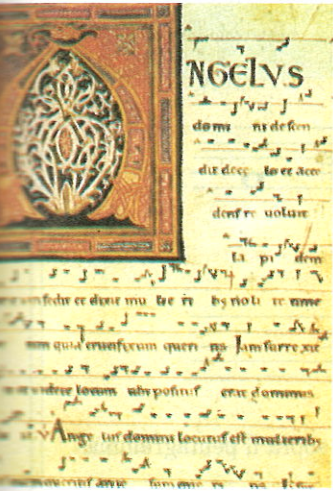 NGELVS
domi ni descen
dit de ce lo et acce
dens re uoluit
la pi dem
sedit et dixit mu lie ri noli te time
crucifixum queri tis Jam surre xit
locum ubi positus erat dominus
V Ange lus domini locutus est mulieribus